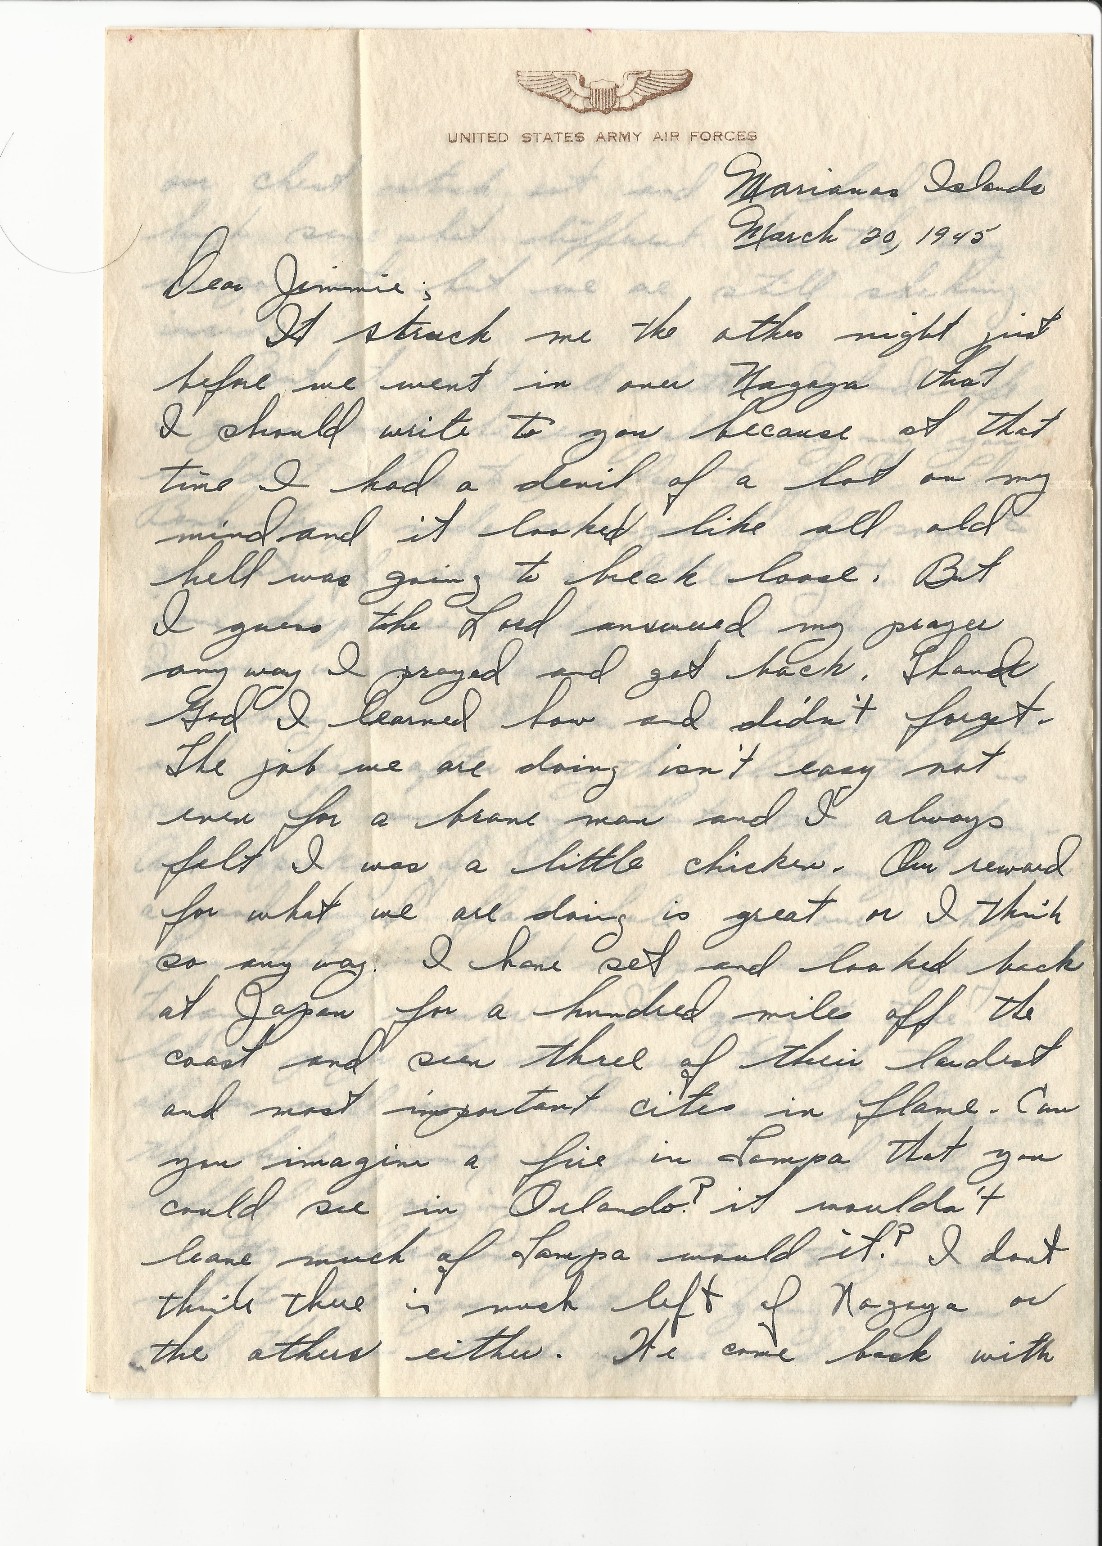 UNITED STATES ARMY AIR FORCES
Marianas Islands
March 20, 1945
Dear Jimmie;
It struck me the other night just
before we went in over Nagoya that
I should write to you because at that
time I had a devil of a lot on my
mind and it looked like all old
hell was going to break loose. But
I guess the Lord answered my prayer
anyway I prayed and got back. Thank
God I learned how and didn't forget.
The job we are doing isn't easy not
even for a brave man and I always
felt I was a little chicken. Our reward
for what we are doing is great or I think
so any way. I have set and looked back
at Japan for a hundred miles off the
coast and seen three of their lardest
and most important cites in flame. Can
you imagine a fire in Tampa that you
could see in Orlando? it wouldn't
leave much of Tampa would it? I dont
think there is much left of Nagoya or
the others either. We come back with